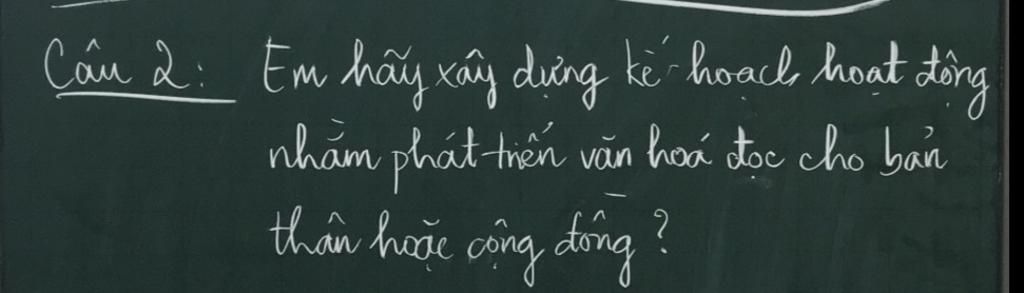 Câu 2: Em hãy xây dựng kế hoạch hoạt động
nhằm phát triển văn hoá đọc cho bản
thân hoặc cộng đồng?